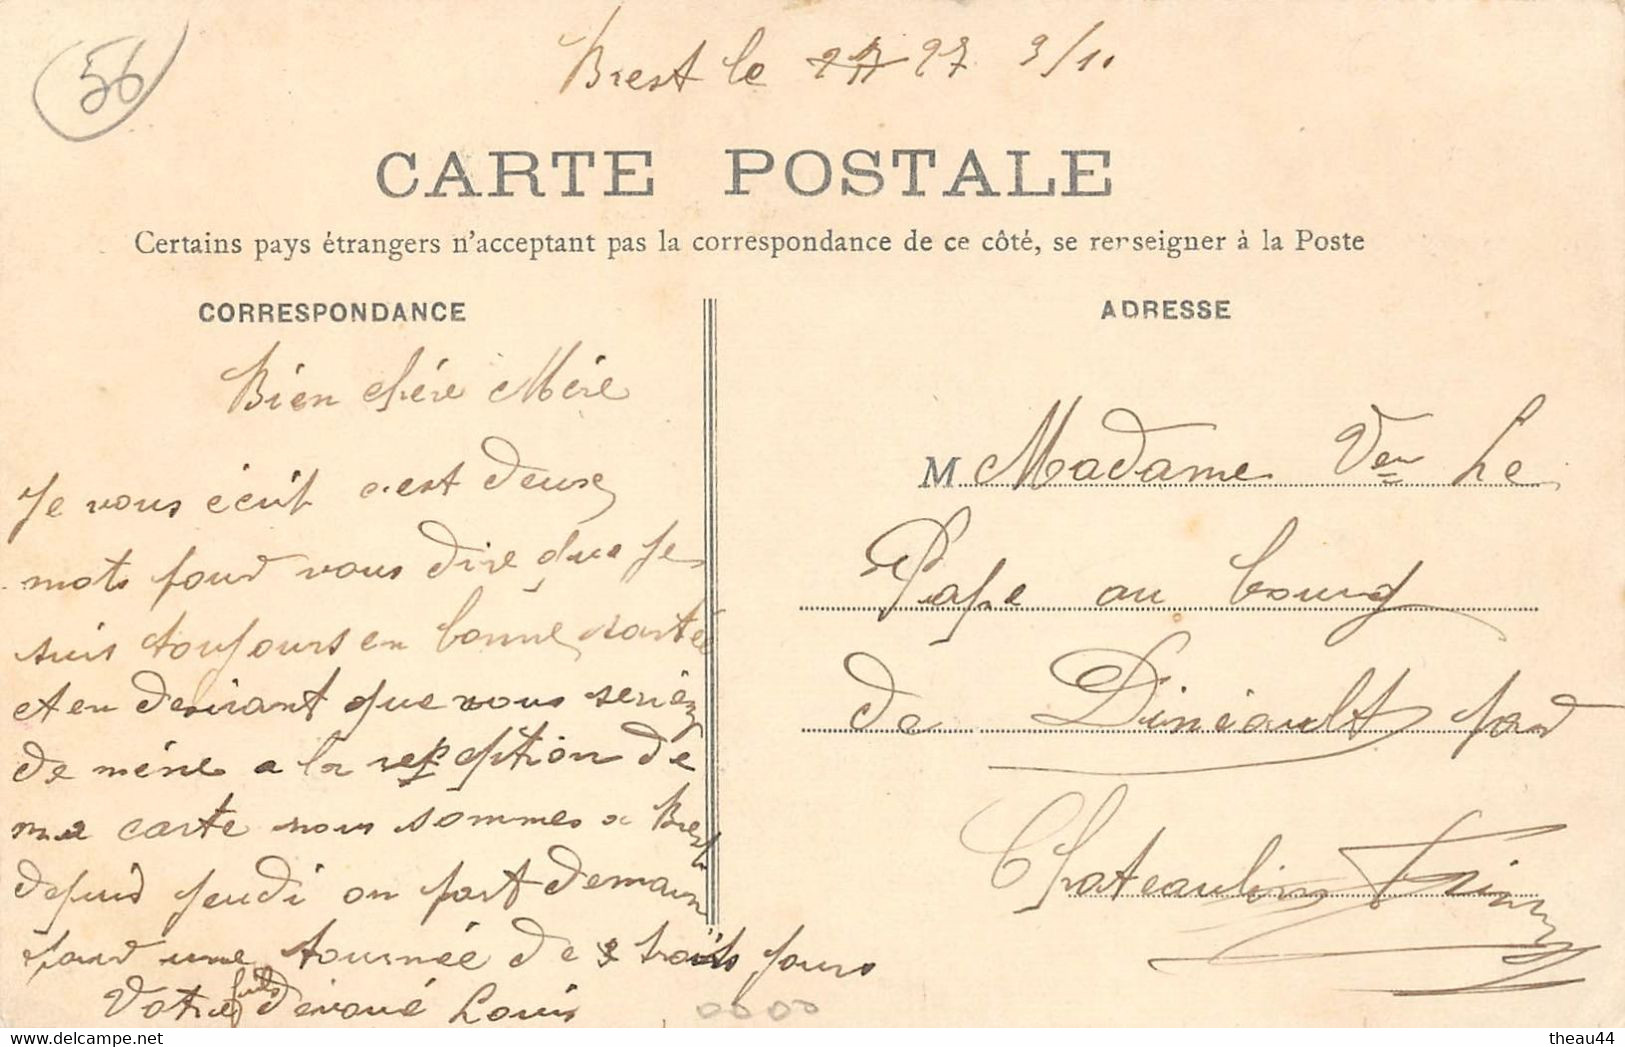 56
Brest le 27 9/10
CARTE POSTALE
Certains pays étrangers n'acceptant pas la correspondance de ce côté, se renseigner à la Poste
CORRESPONDANCE
Bien chére Mére
Je vous écrit c'est deux
mots pour vous dire que je
suis toujours en bonne santée
et en desirant que vous seriéz
de méne a la reception de
ma carte nous sommes a Brest
depuis jeudi on part demain
pour une tournée de trois jours
Votre fils dévoué Louis
ADRESSE
M Madame Veu Le
Pape au bourg
de Dinéault par
Chateaulin Finis
theau44